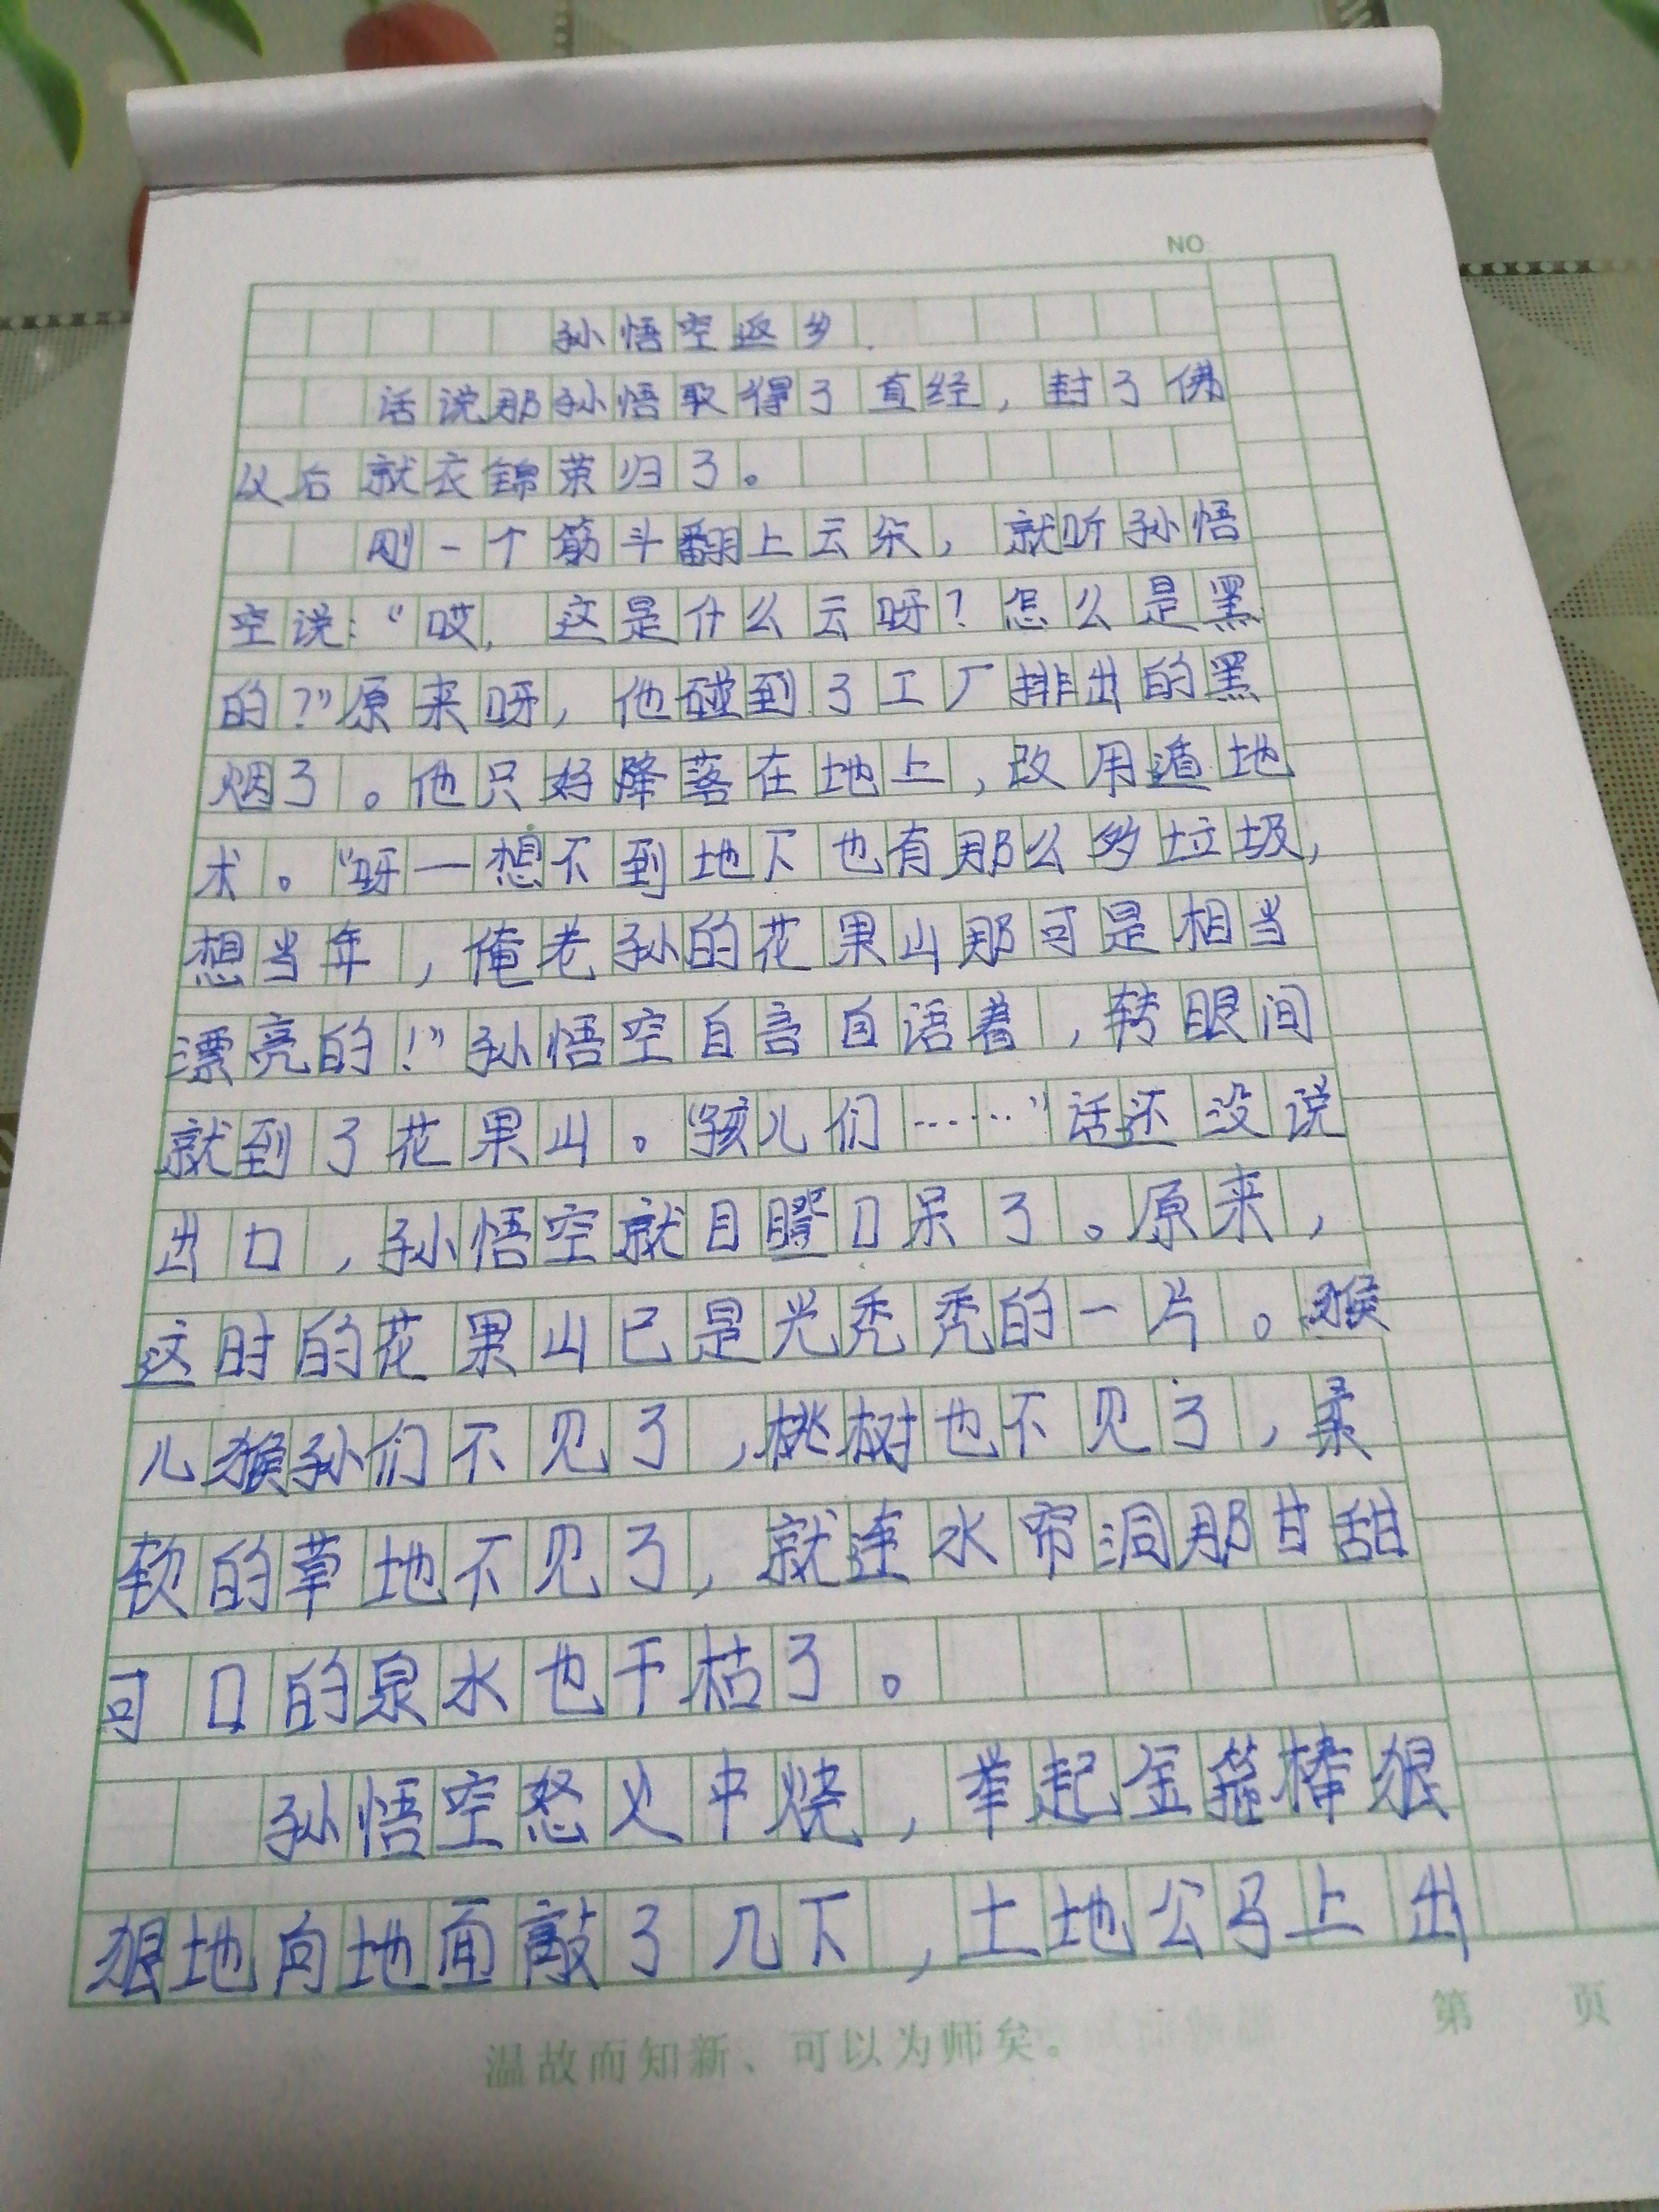 NO
孙悟空返乡.
话说那孙悟取得了直经，封了佛
以后就衣锦荣归了。
刚一个筋斗翻上云朵，就听孙悟
空说：“哎，这是什么云呀？怎么是黑
的？”原来呀，他碰到了工厂排出的黑
烟了。他只好降落在地上，改用遁地
术。“呀—想不到地下也有那么多垃圾，
想当年，俺老孙的花果山那可是相当
漂亮的！”孙悟空自言自语着，转眼间
就到了花果山。“孩儿们……”话还没说
出口，孙悟空就目瞪口呆了。原来，
这时的花果山已是光秃秃的一片。猴
儿猴孙们不见了，桃树也不见了，柔
软的草地不见了，就连水帘洞那甘甜
可口的泉水也干枯了。
孙悟空怒火中烧，举起金箍棒狠
狠地向地面敲了几下，土地公马上出
第 页
温故而知新、可以为师矣。